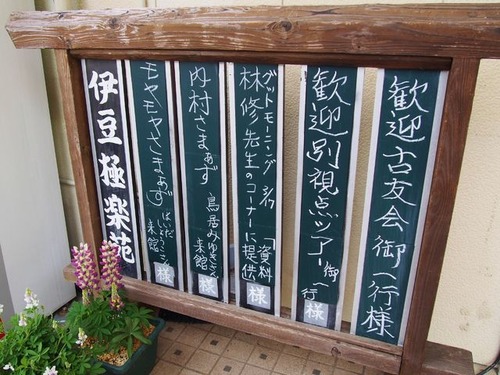 歓迎古友会御一行様
歓迎別視点ツアー御一行様
グットモーニング
林修先生のコーナーに資料提供様
内村さまぁず
鳥居みゆきさん来館様
モヤモヤさまぁず
来館様
伊豆極楽苑